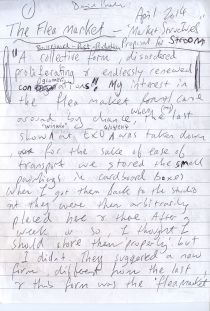 April 2014
The Flea market – Market Structures
Proposal for STROOM
"A collective form, disordered
proliferating, endlessly renewed
My interest in
the flea market came
around by chance, the last
show at was taken down
for the sake of ease of
transport we stored the small
paintings in cardboard boxes
When I got them back to the studio
they were then arbitrarily
placed here & there. After a
week or so, I thought I
should store them properly but
I didn't. They suggested a new
form, different from the last
& this form was the 'flea market'